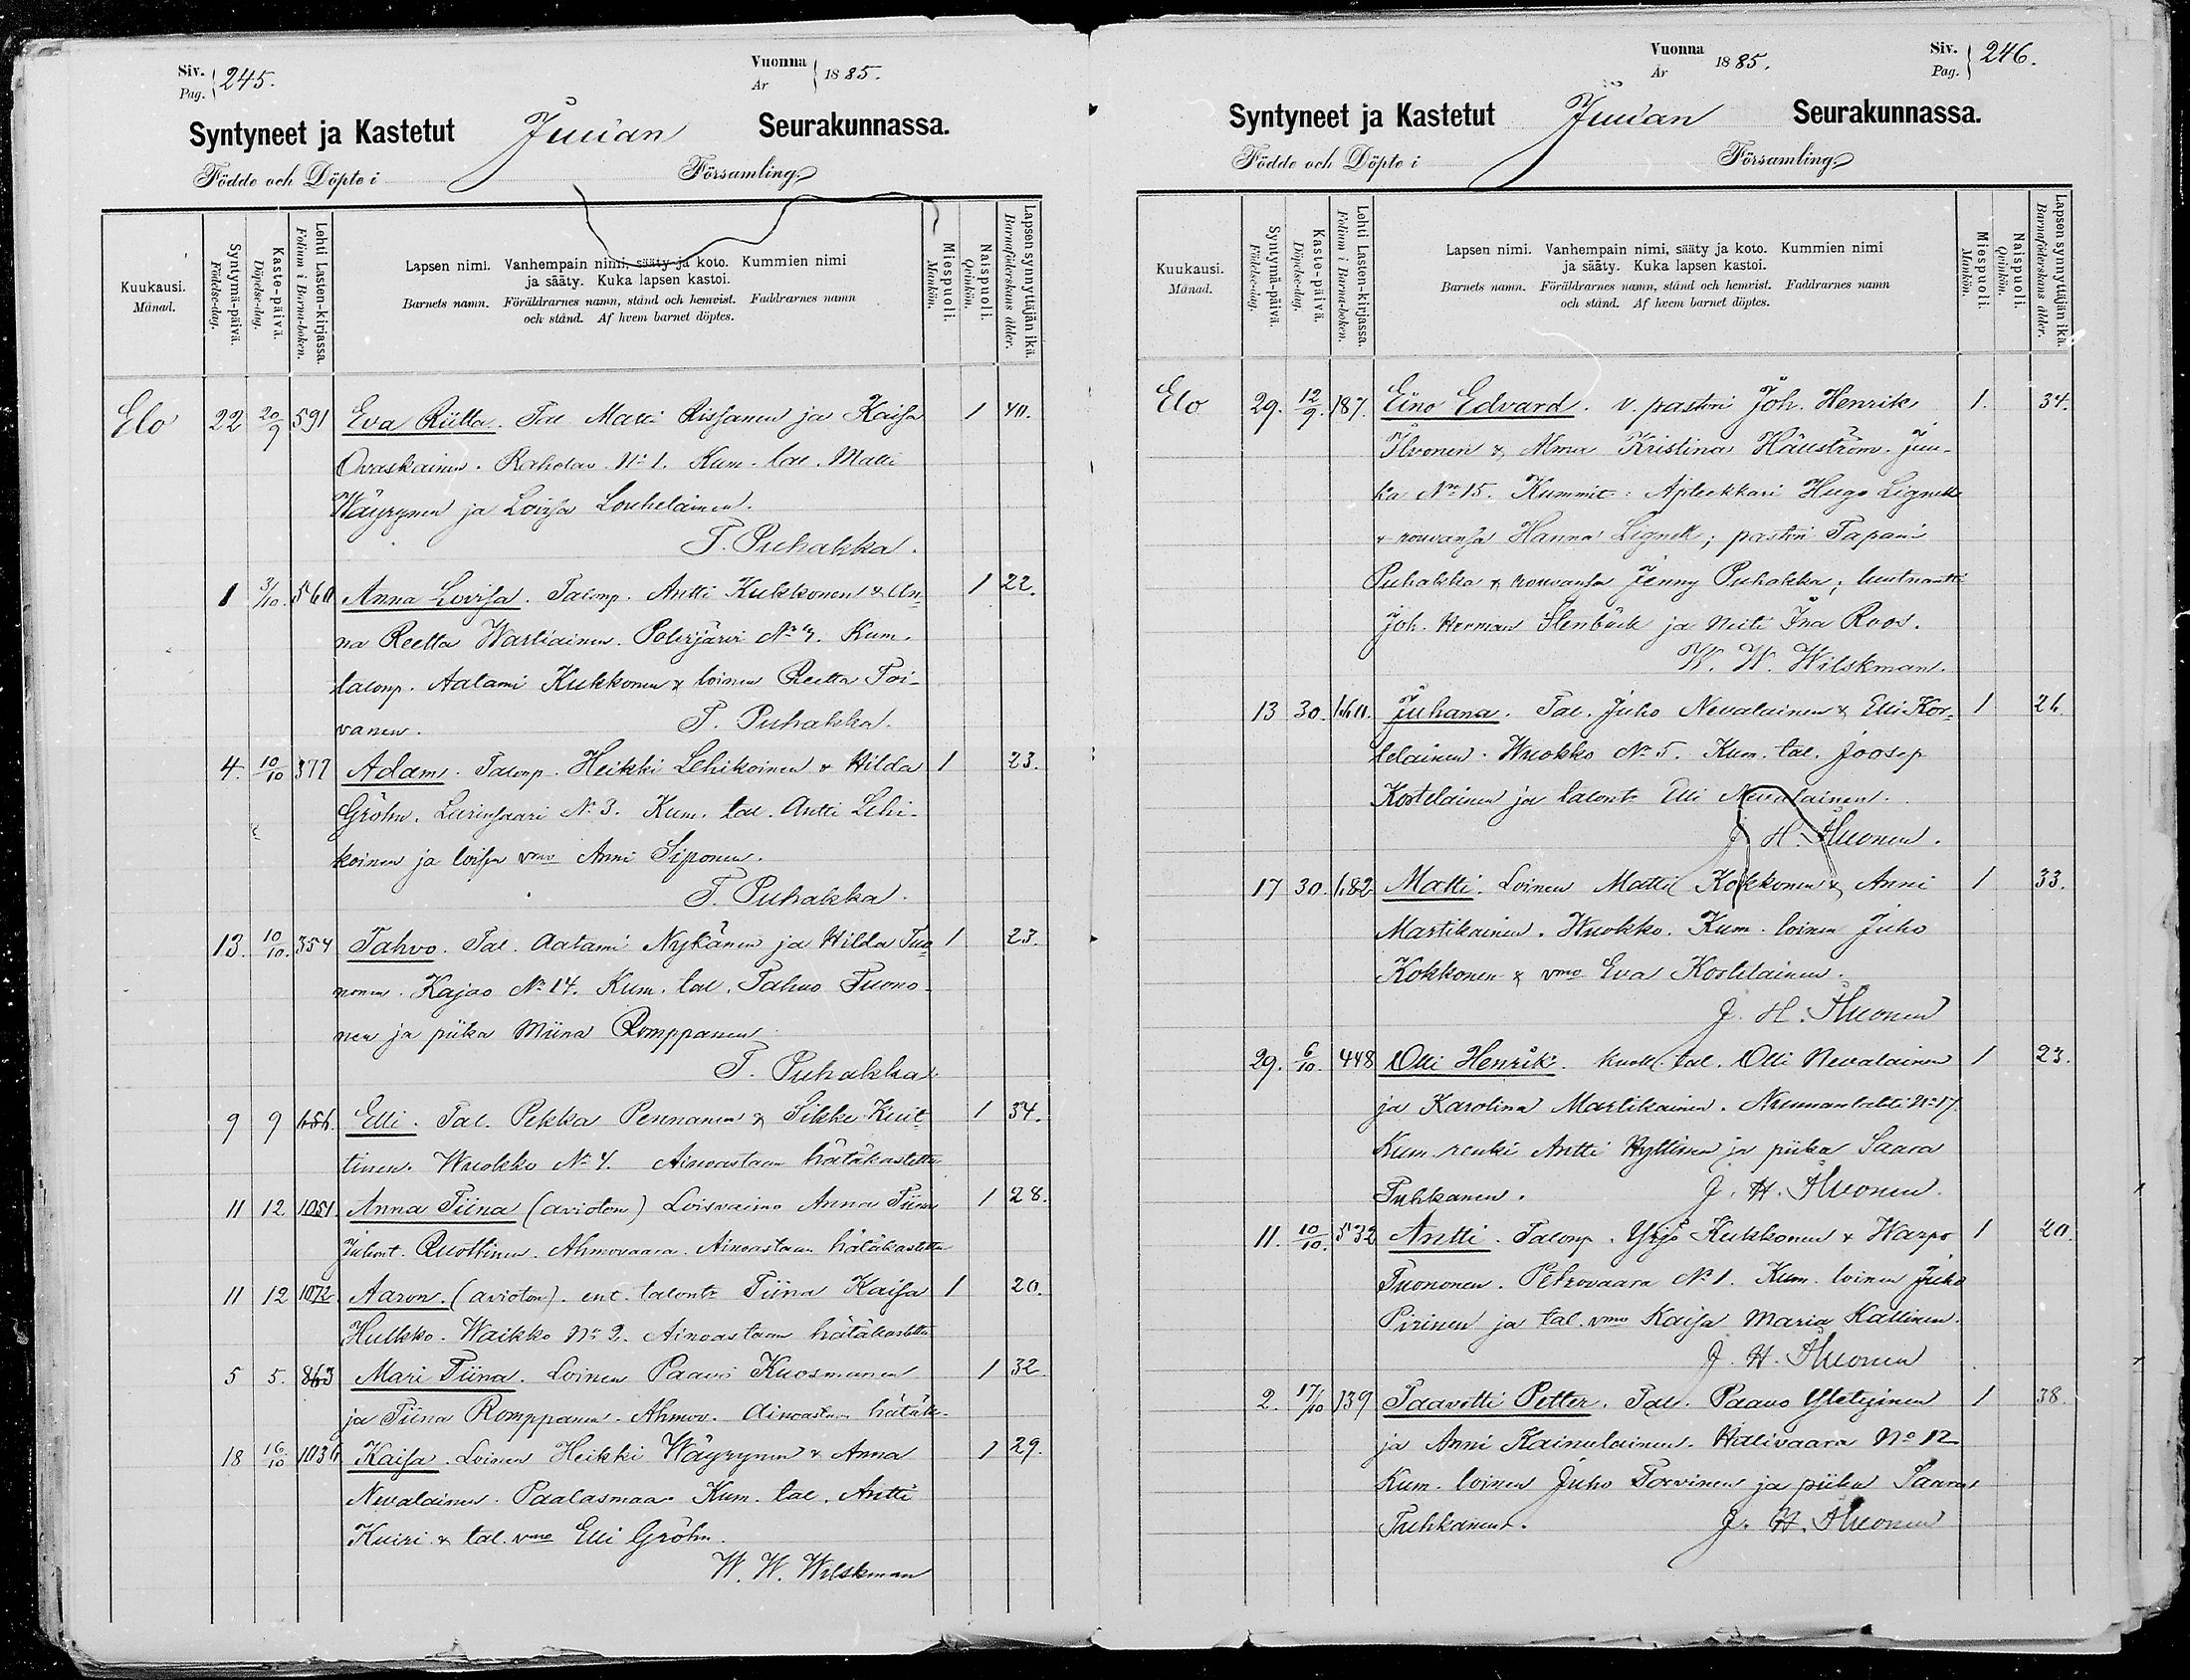 Siv. 245.
Pag.
Vuonna 1885.
Ar
Syntyneet ja Kastetut Juuan Seurakunnassa.
Födde och Döpte i Församling.
Kuukausi.
Månad.
Syntymä-päivä.
Födelse-dag.
Kaste-päivä.
Döpelse-dag.
Lehti Lasten-kirjassa.
Folium i Barna-boken.
Lapsen nimi. Vanhempain nimi, sääty ja koto. Kummien nimi
ja sääty. Kuka lapsen kastoi.
Barnets namn. Föräldrarnes namn, stånd och hemvist. Faddrarnes namn
och stånd. Af hvem barnet döptes.
Miespuoli.
Mankön.
Naispuoli.
Qvinkön.
Lapsen synnyttäjän ikä.
Barnaföderskans ålder.
Elo 22 20/9 591 Eva Riitta. Tal Matti Rissanen ja Kaisa 1 40.
Ovaskainen. Raholan No 1. Kum. tal. Matti
Wäyrynen ja Lovisa Louhelainen.
T. Puhakka.
1 3/10. 560 Anna Lovisa. Talonp. Antti Kukkonen & An- 1 22.
na Reetta Wartiainen. Polvijärvi No 4. Kum.
talonp. Aatami Kukkonen & loinen Reetta Toi-
vanen. T. Puhakka.
4. 10/10 377 Adam. Talonp. Heikki Lehikoinen & Hilda 1 23.
Gröhn. Larinsaari No 3. Kum. tal. Antti Lehi-
koinen ja loisen vmo Anni Siponen.
T. Puhakka.
13. 10/10. 354 Tahvo. Tal. Aatami Nykänen ja Hilda Tuo- 1 23.
nonen. Kajao No 14. Kum. tal. Tahvo Tuono-
nen ja piika Miina Romppanen
T. Puhakka.
9 9 656. Elli. Tal. Pekka Pennanen & Sikke Kuit- 1 34.
tinen. Wuokko No 4. Ainoastaan hätäkastettu
11 12 1051. Anna Tiina (avioton) Loisvaimo Anna Tiina 1 28.
Juhont. Ruottinen. Ahmovaara. Ainoastaan hätäkastettu
11 12 1072. Aaron. (avioton). ent. talontr Tiina Kaisa 1 20.
Hulkko. Waikko No 2. Ainoastaan hätäkastettu
5 5. 863 Mari Tiina. Loinen Paavo Kuosmanen 1 32
ja Tiina Romppanen. Ahmov. Ainoastaan hätäk.
18 16/10 1036 Kaisa. Loinen Heikki Wäyrynen & Anna 1 29.
Nevalainen. Paalasmaa. Kum. tal. Antti
Kuiri & tal. vmo Elli Gröhn.
W. W. Wilskman
Vuonna 1885.
Ar
Siv. 246.
Pag.
Syntyneet ja Kastetut Juuan Seurakunnassa.
Födde och Döpte i Församling.
Kuukausi.
Månad.
Syntymä-päivä.
Födelse-dag.
Kaste-päivä.
Döpelse-dag.
Lehti Lasten-kirjassa.
Folium i Barna-boken.
Lapsen nimi. Vanhempain nimi, sääty ja koto. Kummien nimi
ja sääty. Kuka lapsen kastoi.
Barnets namn. Föräldrarnes namn, stånd och hemvist. Faddrarnes namn
och stånd. Af hvem barnet döptes.
Miespuoli.
Mankön.
Naispuoli.
Qvinkön.
Lapsen synnyttäjän ikä.
Barnaföderskans ålder.
Elo 29. 12/9. 187. Eino Edvard. v. pastori Joh. Henrik 1. 34.
Ihvonen & Alma Kristina Häuström. Juu-
ka No 15. Kummit: Apteekkari Hugo Lignell
& rouvansa Hanna Lignell; pastori Tapani
Puhakka & rouvansa Jenny Puhakka; luutnantti
Joh. Herman Stenbäck ja neiti Ina Roos.
W. W. Wilskman.
13 30. 660. Juhana. Tal. Juho Nevalainen & Elli Kos- 1 26.
telainen. Wuokko No 5. Kum. tal. Joosep
Kostelainen ja talontr Elli Nevalainen.
J. H. Ihvonen.
17 30. 682 Matti. Loinen Matti Kokkonen & Anni 1 33.
Martikainen. Wuokko. Kum. loinen Juho
Kokkonen & vmo Eva Kostelainen.
J. H. Ihvonen
29. 6/10. 448 Olli Henrik. tal. Olli Nevalainen 1 23.
ja Karolina Martikainen. Nunnanlahti No 17
Kum. renki Antti Hyttinen ja piika Saara
Tuhkanen. J. H. Ihvonen.
11. 10/10. 532 Antti. Talonp. Yrjö Kukkonen & Warpo 1 20.
Tuononen. Petrovaara No 1. Kum. loinen Juho
Pirinen ja tal. vmo Kaisa Maria Kallinen.
J. H. Ihvonen
2. 17/10 139 Taavetti Petter. Tal. Paavo Gletjinen 1 38.
ja Anni Kainulainen. Halivaara No 12
Kum. loinen Juho Torvinen ja piika Saara
Tuhkanen. J. H. Ihvonen